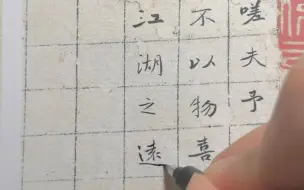 嗟夫予
不以物喜
江湖之遠